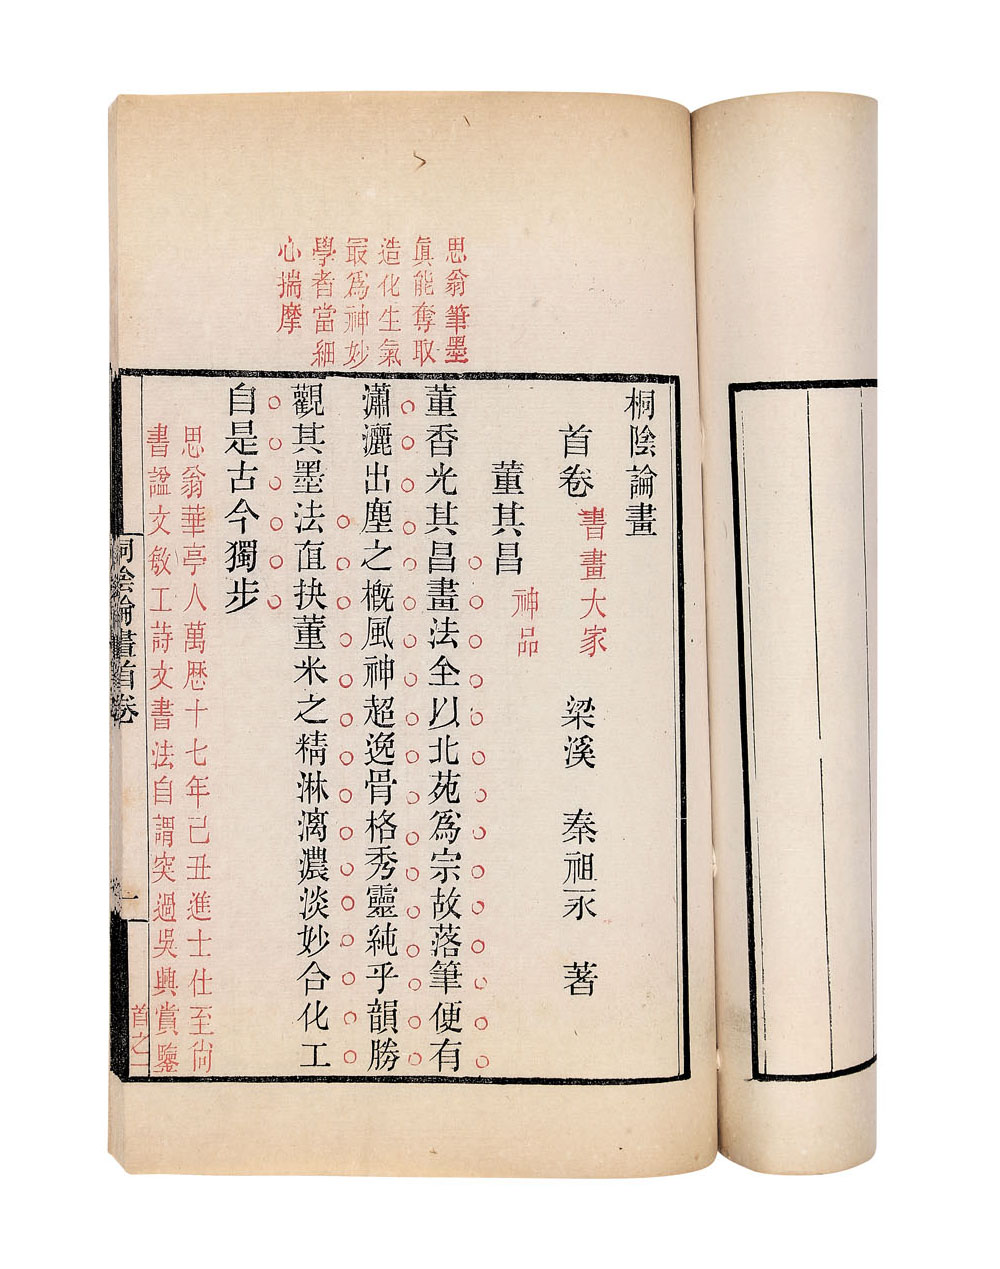 思翁筆墨
眞能奪取
造化生氣
最爲神妙
學者當細
心揣摩
桐陰論畫
首卷 書畫大家 梁溪 秦祖永 著
董其昌 神品
董香光其昌畫法全以北苑爲宗故落筆便有
瀟灑出塵之槪風神超逸骨格秀靈純乎韻勝
觀其墨法直抉董米之精淋漓濃淡妙合化工
自是古今獨步
思翁華亭人萬歷十七年己丑進士仕至尙
書諡文敏工詩文書法自謂突過吳興賞鑒
桐陰論畫首卷
一
首之一